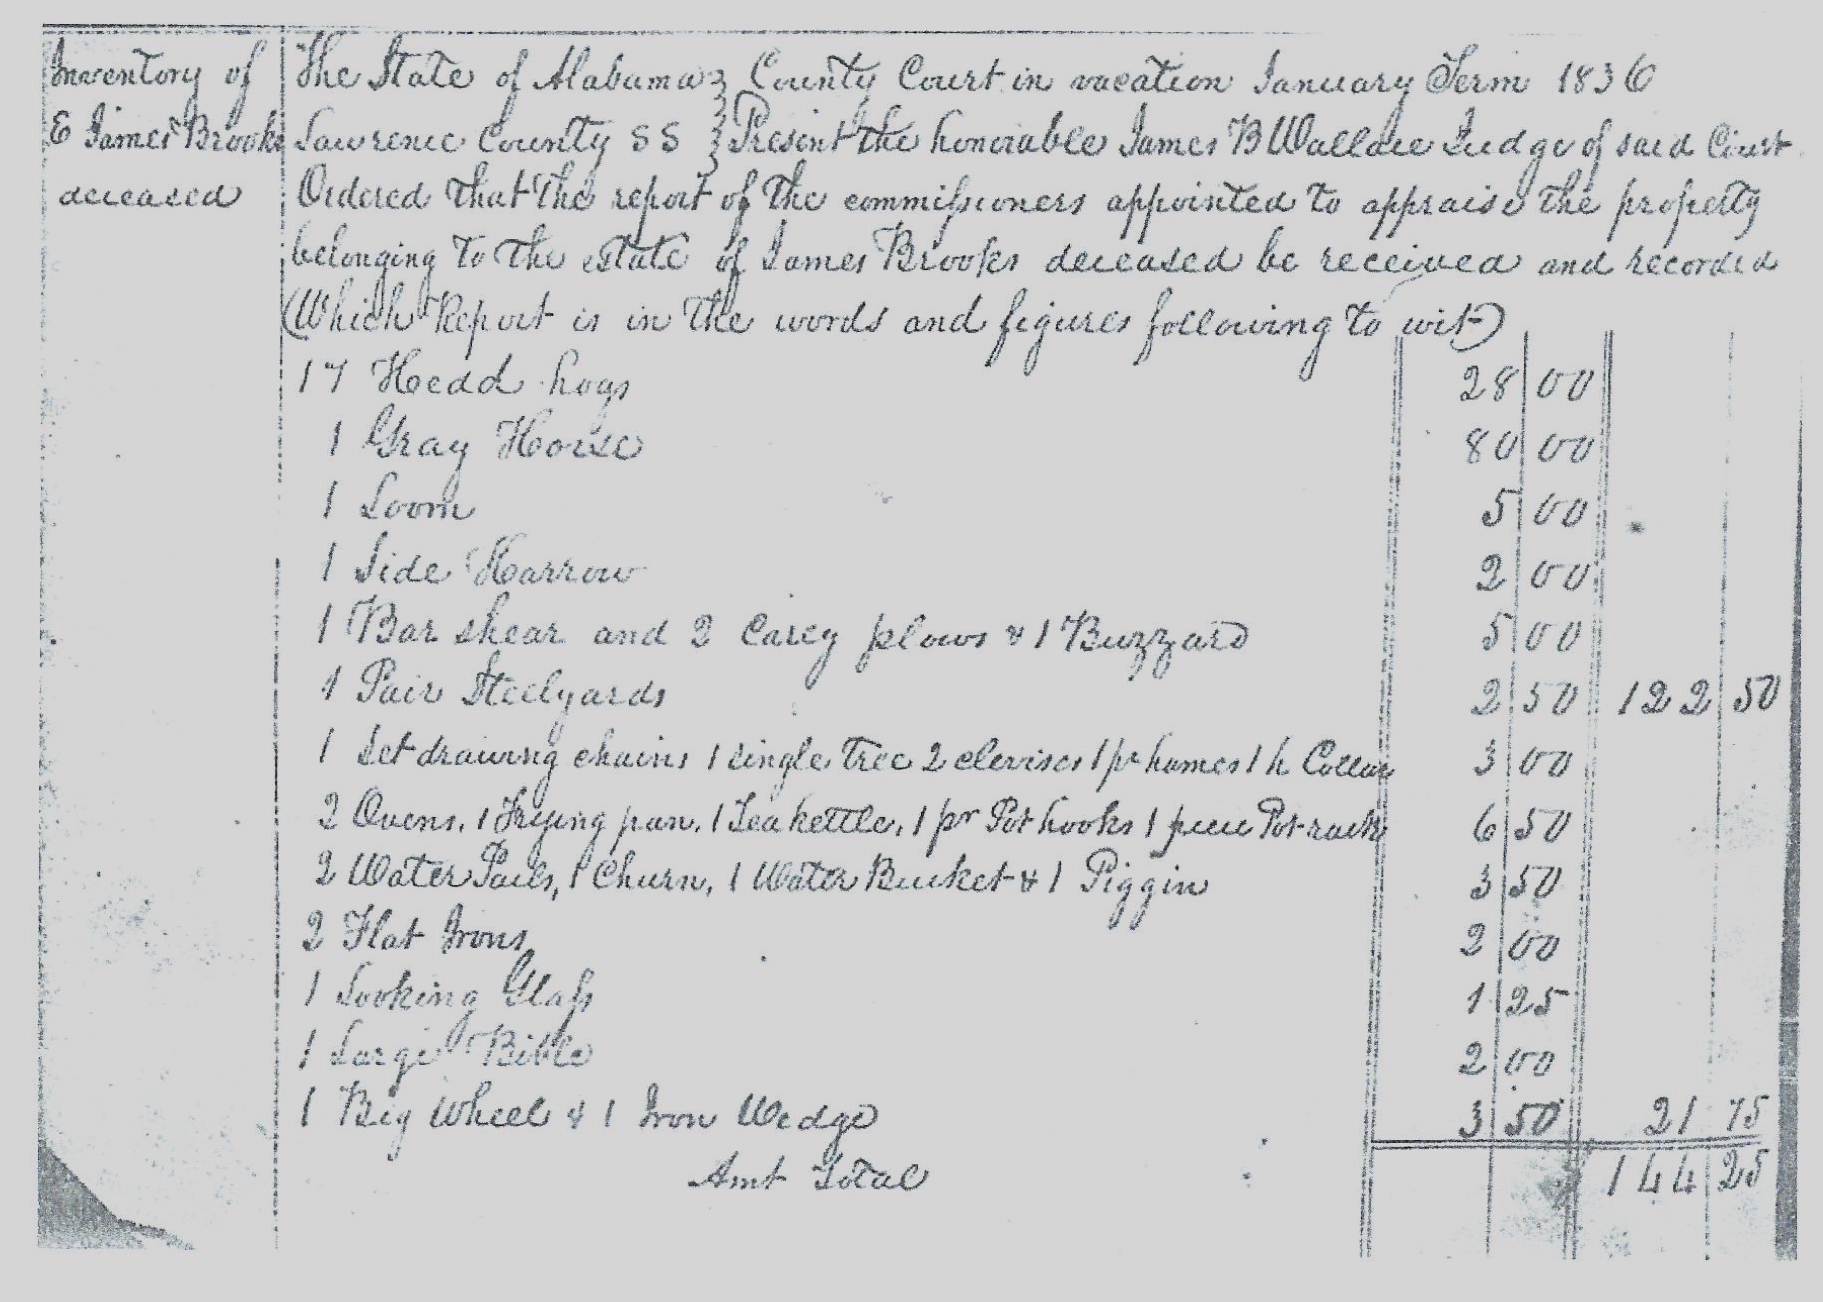 Inventory of
E James Brooks
deceased
The State of Alabama } County Court in vacation January Term 1836
Lawrence County SS } Present the honorable James B Wallace Judge of said Court
Ordered that the report of the commissioners appointed to appraise the property
belonging to the estate of James Brooks deceased be received and recorded
(Which Report is in the words and figures following to wit)
17 Head hogs 28 00
1 Gray Horse 80 00
1 Loom 5 00
1 Side Harrow 2 00
1 Bar shear and 2 Carey plows & 1 Buzzard 5 00
1 Pair Steelyards 2 50 122 50
1 Set drawing chains 1 single tree 2 clevises 1 pr hames 1 h Collar 3 00
2 Ovens, 1 Frying pan, 1 Tea kettle, 1 pr Pot hooks 1 piece Pot-rack 6 50
2 Water Pails, 1 Churn, 1 Water Bucket & 1 Piggin 3 50
2 Flat Irons 2 00
1 Looking Glass 1 25
1 Large Bible 2 00
1 Big Wheel & 1 Iron Wedge 3 50 21 75
Amt Total 144 25